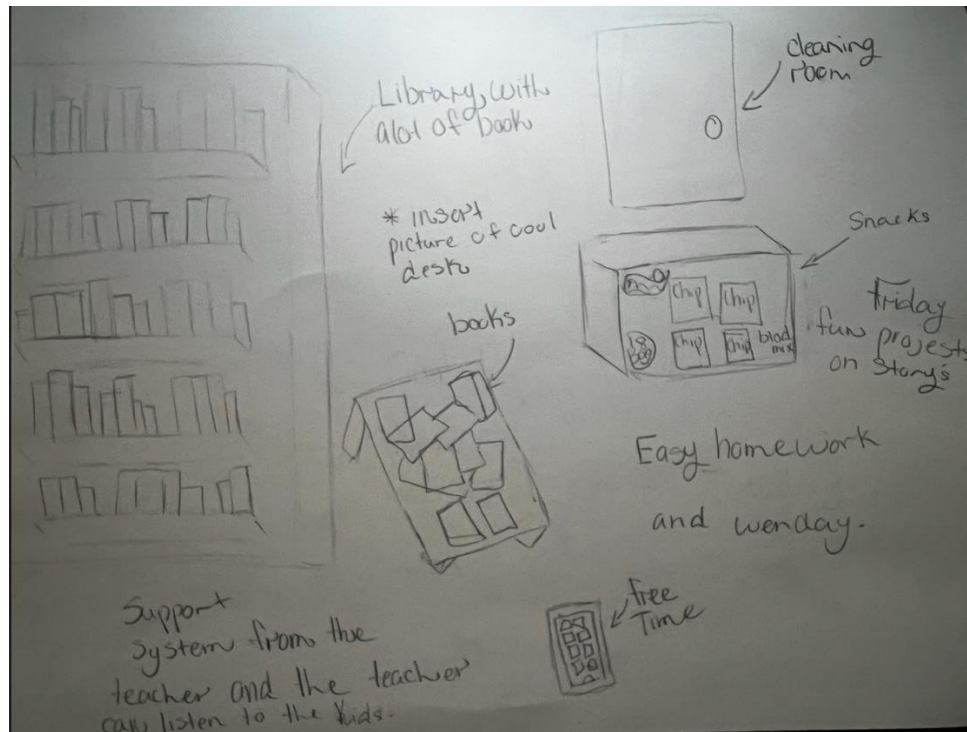 Library, with
alot of book
cleaning
room
* insert
picture of cool
desk
Snacks
chip
chip
chip
chip
mix
Friday
fun projests
on Story's
books
Easy homework
and wenday.
free
Time
Support
System from the
teacher and the teacher
can listen to the kids.